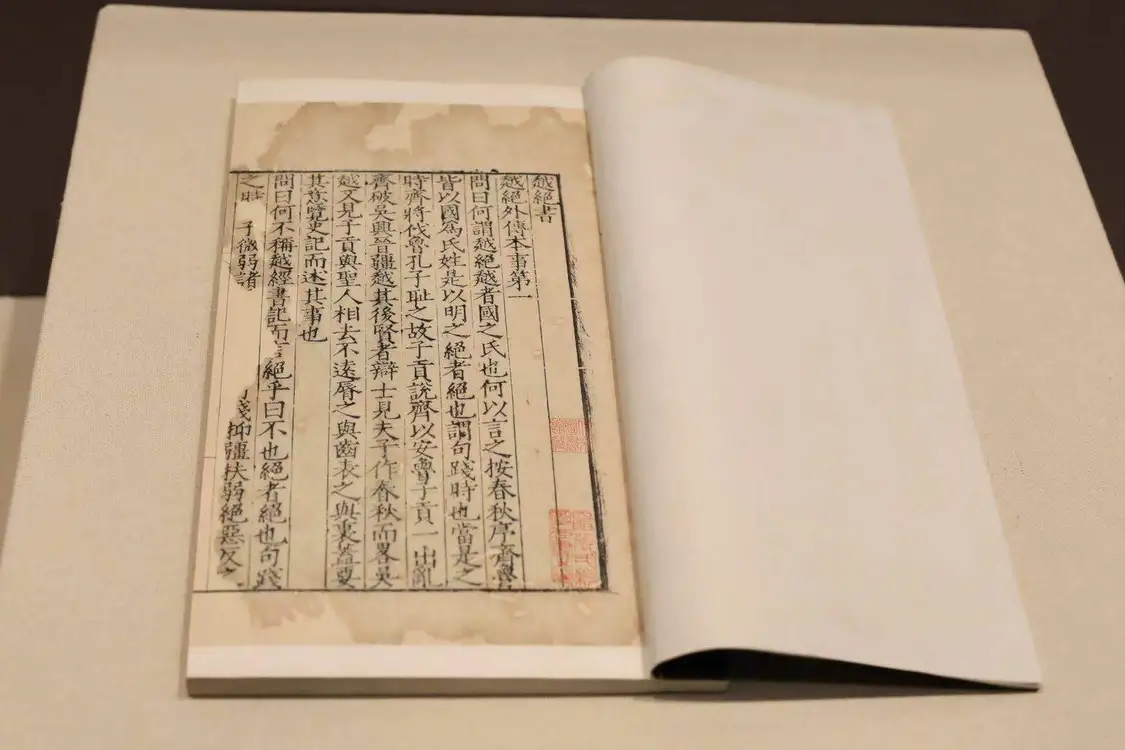 越絕書
越絕外傳本事第一
問曰何謂越絕越者國之氏也何以言之按春秋序齊魯
皆以國爲氏姓是以明之絕者絕也謂句踐時也當是之
時齊將伐魯孔子耻之故子貢說齊以安魯子貢一出亂
齊破吳興晉疆越其後賢者辯士見夫子作春秋而畧吳
越又見子貢與聖人相去不遠脣之與齒表之與裏蓋要
其意覽史記而述其事也
問曰何不稱越經書記而言絕乎曰不也絕者絕也句踐
之時 子微弱諸 踐抑疆扶弱絕惡反之